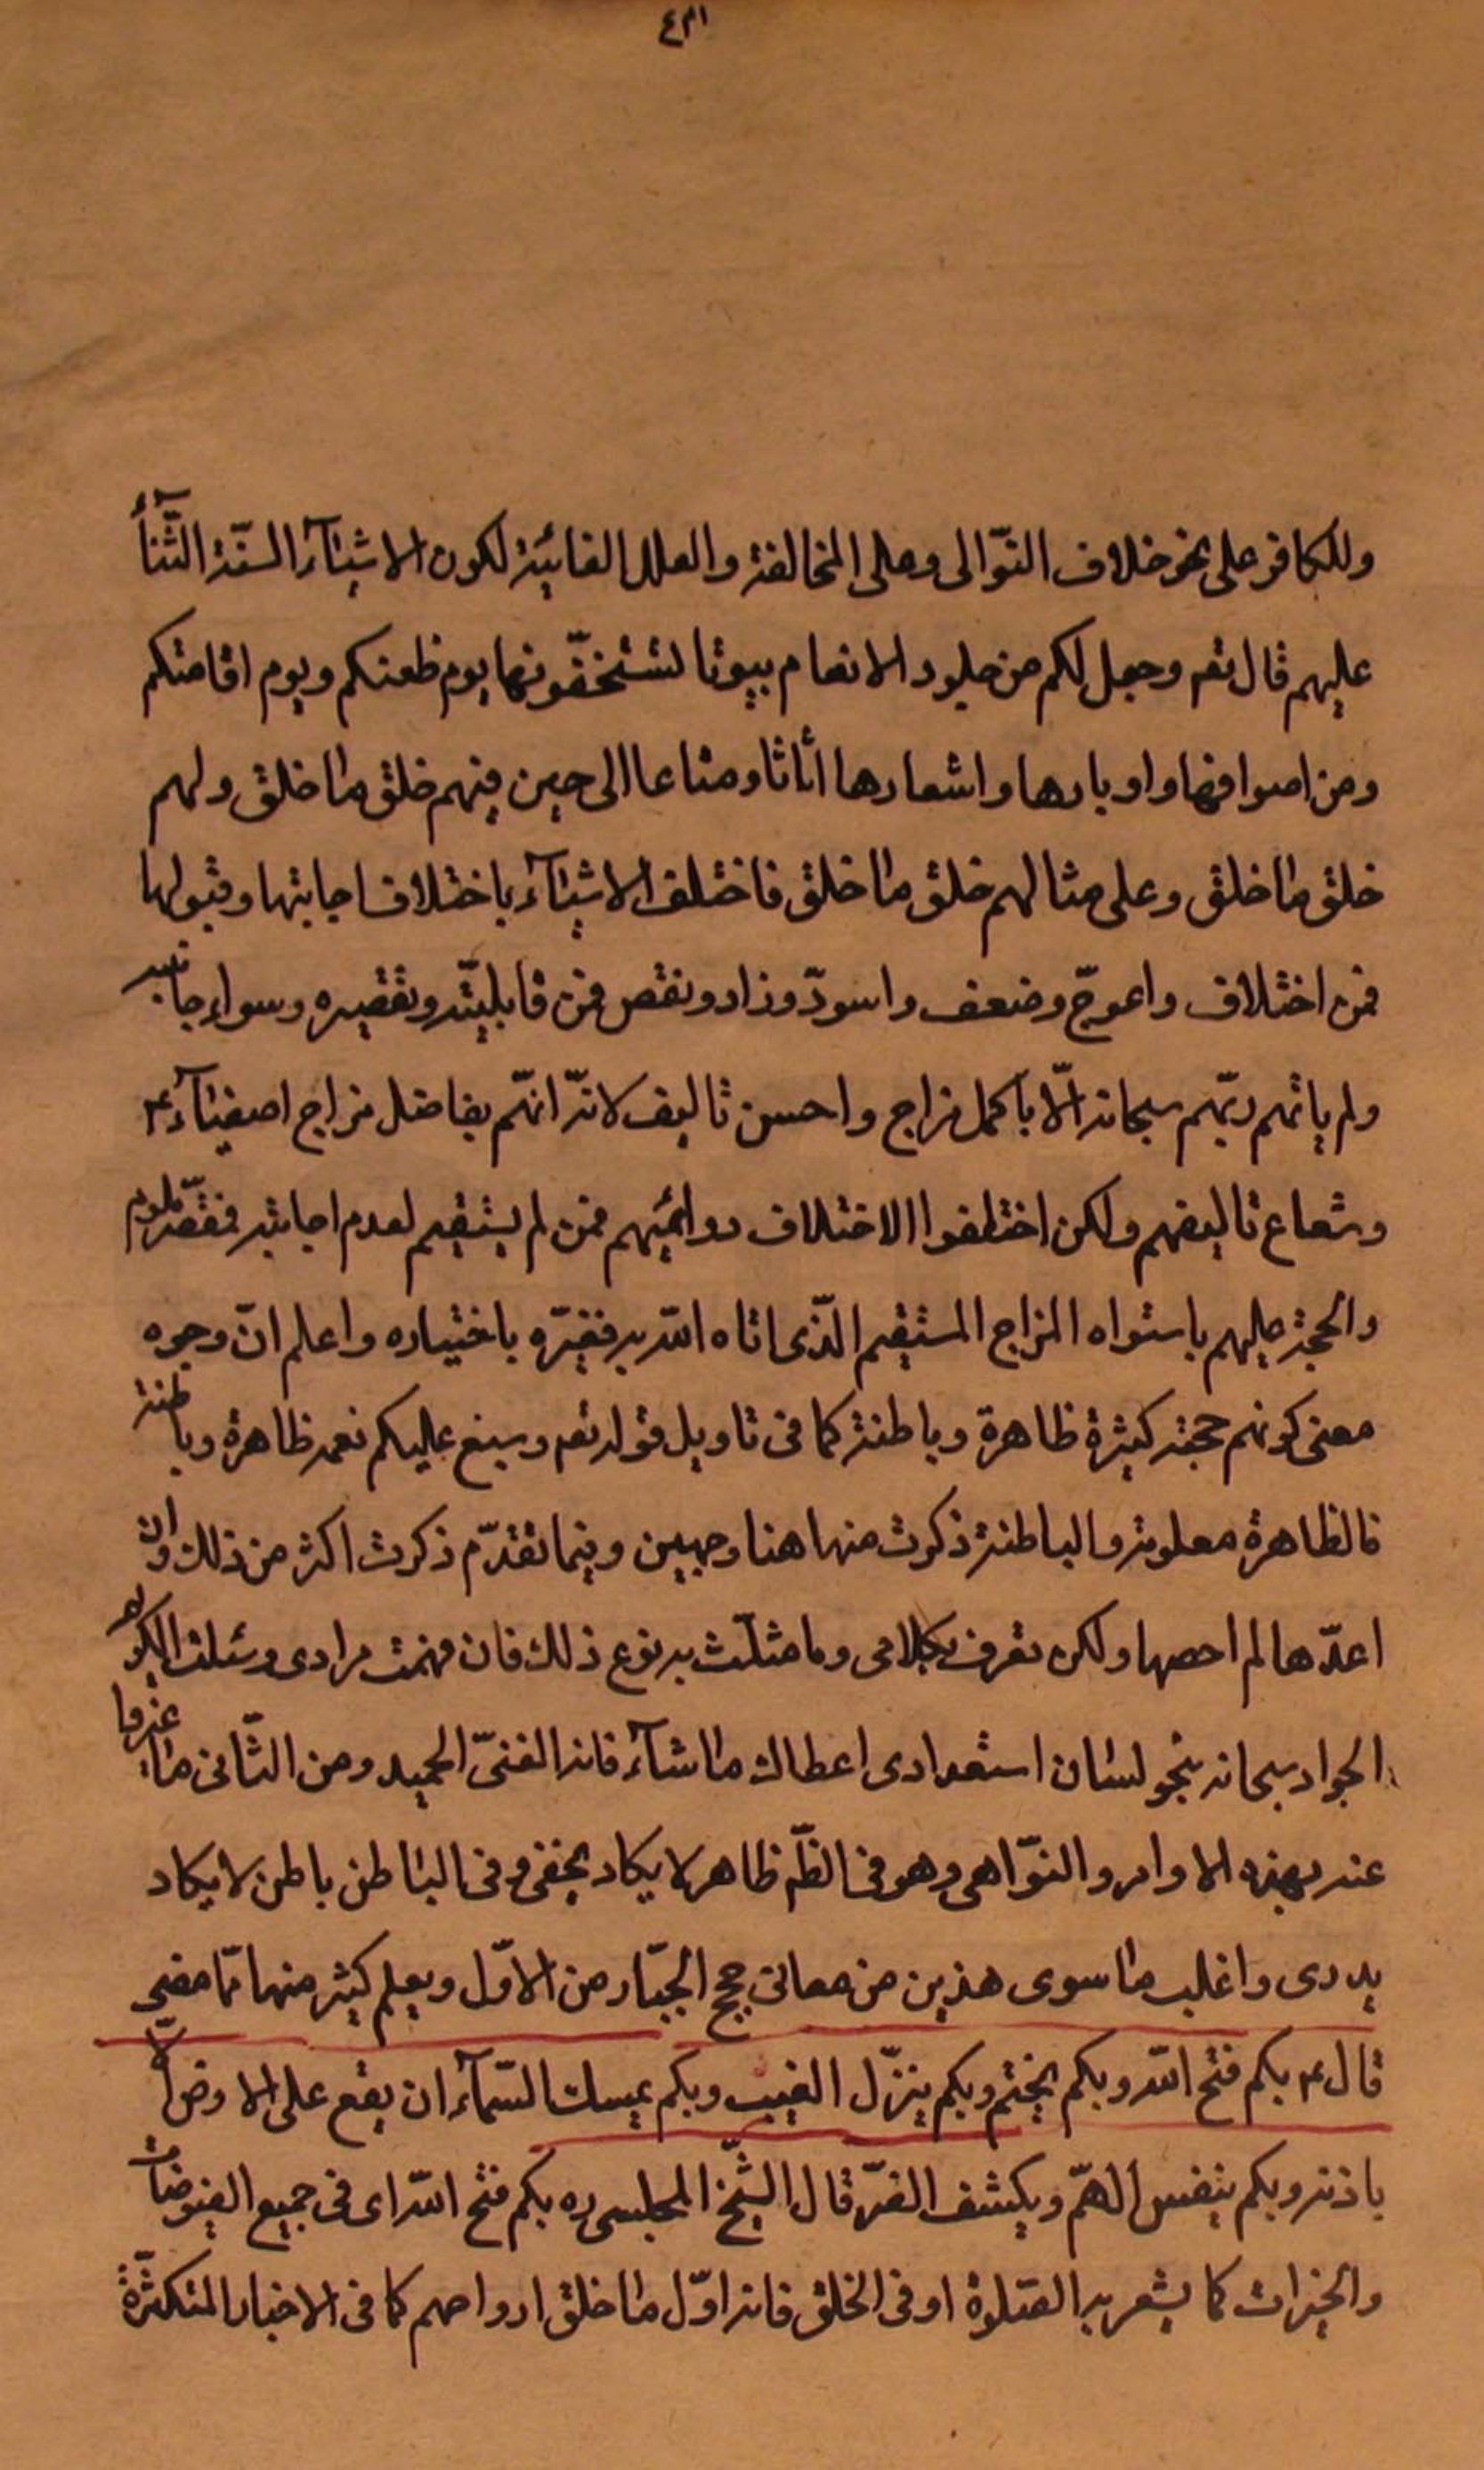 ٤٣١
وللكافر على نحو خلاف التوّالى وعلى المخالفة والعلل الغائيّة لكون الاشيآء السنة الثّنآء
عليهم قال تعم وجعل لكم من جلود الانعام بيوتا تستخفّونها يوم ظعنكم ويوم اقامتكم
ومن اصوافها واوبارها واشعارها أثاثا ومتاعا الى حين فبهم خلق ما خلق ولهم
خلق ما خلق وعلى مثالهم خلق ما خلق فاختلف الاشيآء باختلاف اجابتها وقبولها
فمن اختلاف واعوجّ وضعف واسودّ وزاد ونقص فمن قابليّته وتقصيره وسوء اجابته
ولم ياتهم ربّهم سبحانه الّا بآكمل مزاج واحسن تاليف لانّه اتٰهم بفاضل مزاج اصفيآئه
وشعاع تاليفهم ولكن اختلفوا الاختلاف دواعيهم فمن لم يستقيم لعدم اجابته فقصّر ملوم
والحجة عليهم باستواء المزاج المستقيم الّذى اتاه الله به فغيّره باختياره واعلم انّ وجوه
معنى كونهم حجته كثيرة ظاهرة وباطنة كما فى تاويل قوله تعم وسبغ عليكم نعمه ظاهرة وباطنة
فالظاهرة معلومة والباطنة ذكرت منها هنا وجهين وفيما تقدّم ذكرت اكثر من ذلك وان
اعدّها لم احصها ولكن تعرف بكلامى وما مثلت به نوع ذلك فان فهمت مرادى وسئلت الكريم
الجواد سبحانه بنحو لسان استعدادى اعطاك ما شآء فانه الغنىّ الحميد ومن الثّانى ما
عنه بهذه الاوامر والنّواهى وهو فى الظّم ظاهر لا يكاد يخفى وفى الباطن باطن لا يكاد
يدرى واغلب ما سوى هذين من معانى حجج الجبّار من الاوّل ويعلم كثير منها ممّا مضى
قال ع بكم فتح الله وبكم يختم وبكم ينزّل الغيث وبكم يمسك السّمآء ان يقع على الارض الّا
باذنه وبكم ينفس الهمّ ويكشف الضّر قال الشّيخ المجلسى ره بكم فتح الله اى فى جميع الفيوضات
والخيرات كما يشعر به الصّلوة او فى الخلق فانه اوّل ما خلق ارواحهم كما فى الاخبار المتكثّرة